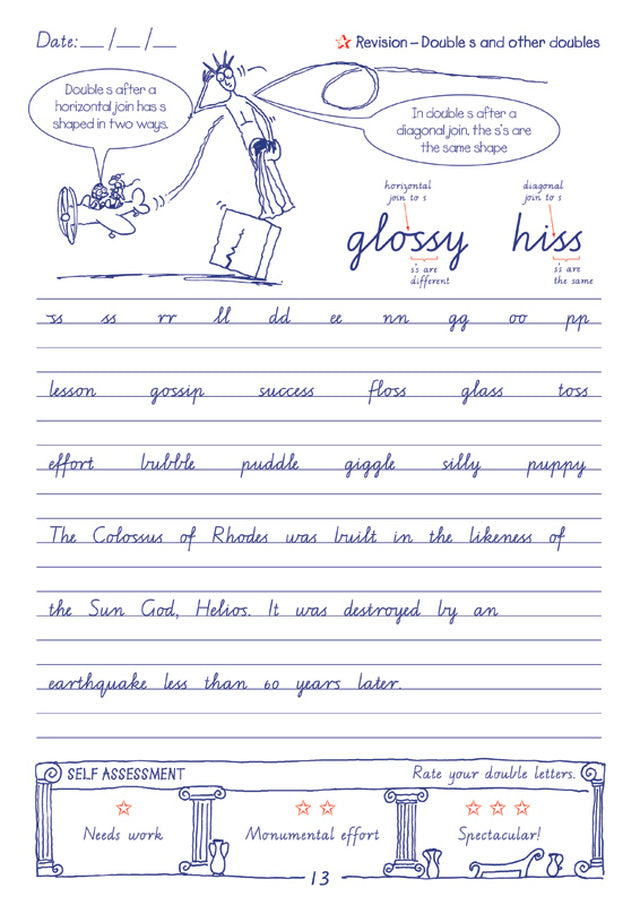 Date: __ /__ /__
Revision – Double s and other doubles
Double s after a
horizontal join has s
shaped in two ways.
In double s after a
diagonal join, the s's are
the same shape
horizontal
join to s
diagonal
join to s
glossy
hiss
s's are
different
s's are
the same
ss ss rr ll dd ee nn gg oo pp
lesson gossip success floss glass toss
effort bubble puddle giggle silly puppy
The Colossus of Rhodes was built in the likeness of
the Sun God, Helios. It was destroyed by an
earthquake less than 60 years later.
SELF ASSESSMENT
Rate your double letters.
Needs work
Monumental effort
Spectacular!
13